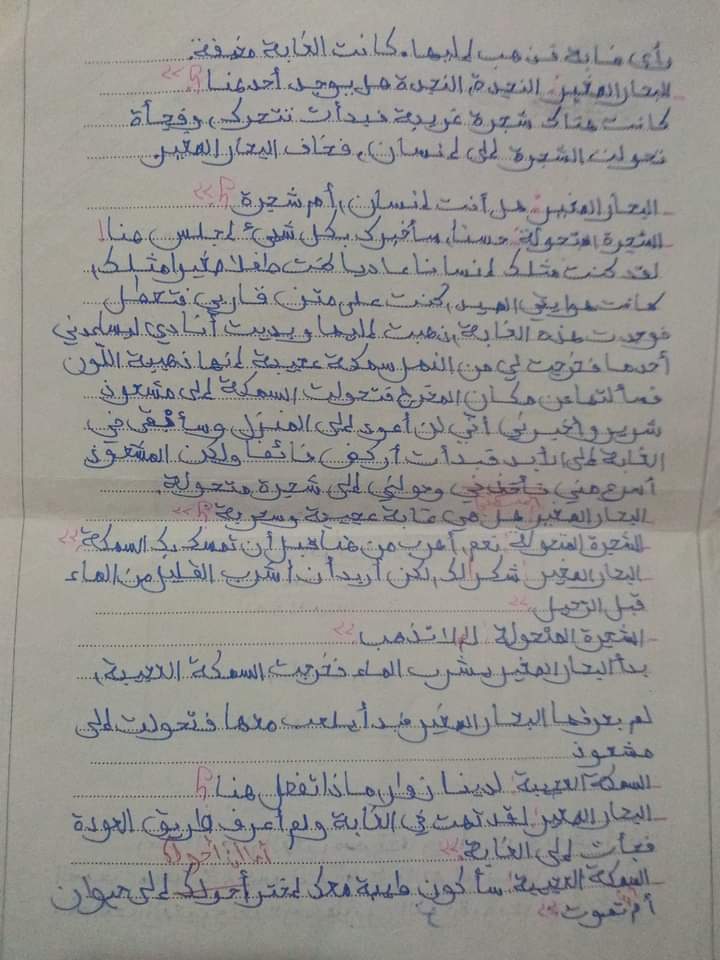 رأى غابة فذهب إليها. كانت الغابة مخيفة.
البحار الصغير: النجدة، النجدة هل يوجد أحد هنا؟ >>
كانت هناك شجرة غريبة فبدأت تتحرك، وفجأة
تحولت الشجرة إلى إنسان، فخاف البحار الصغير.
البحار الصغير: هل أنت إنسان، أم شجرة؟ >>
الشجرة المتحولة: حسنا، سأخبرك بكل شيئ إجلس هنا!
لقد كنت مثلك إنسانا عاديا كنت طفلا صغيرا مثلك،
كانت هوايتي الصيد، كنت على متن قاربي فتعطل
فوجدت هذه الغابة، ذهبت إليها وبديت أنادي ليساعدني
أحدها فخرجت لي من النهر سمكة عجيبة إنها ذهبية اللون
فسألتها عن مكان المخرج فتحولت السمكة إلى مشعوذ
شرير وأخبرني أنني لن أعود إلى المنزل وسأبقى في
الغابة إلى الأبد فبدأت أركض خائفا ولكن المشعوذ
أسرع مني وحولني إلى شجرة متحولة.
البحار الصغير: هل هي غابة عجيبة وسحرية؟ >>
الشجرة المتحولة: نعم، أهرب من هنا قبل أن تمسك بك السمكة >>
البحار الصغير: شكرا لك، لكن أريد أن أشرب القليل من الماء
قبل الرحيل. >>
الشجرة المتحولة: لا لا تذهب >>
بدأ البحار الصغير يشرب الماء فخرجت السمكة العجيبة،
لم يعرفها البحار الصغير فبدأ يلعب معها فتحولت إلى
مشعوذ
السمكة العجيبة: لدينا زوار ماذا تفعل هنا؟
البحار الصغير: لقد تهت في الغابة ولم أعرف طريق العودة
فجأت إلى الغابة. >>
السمكة العجيبة: سأكون طيبة معك إختر أحولك إلى حيوان
أم تموت >>